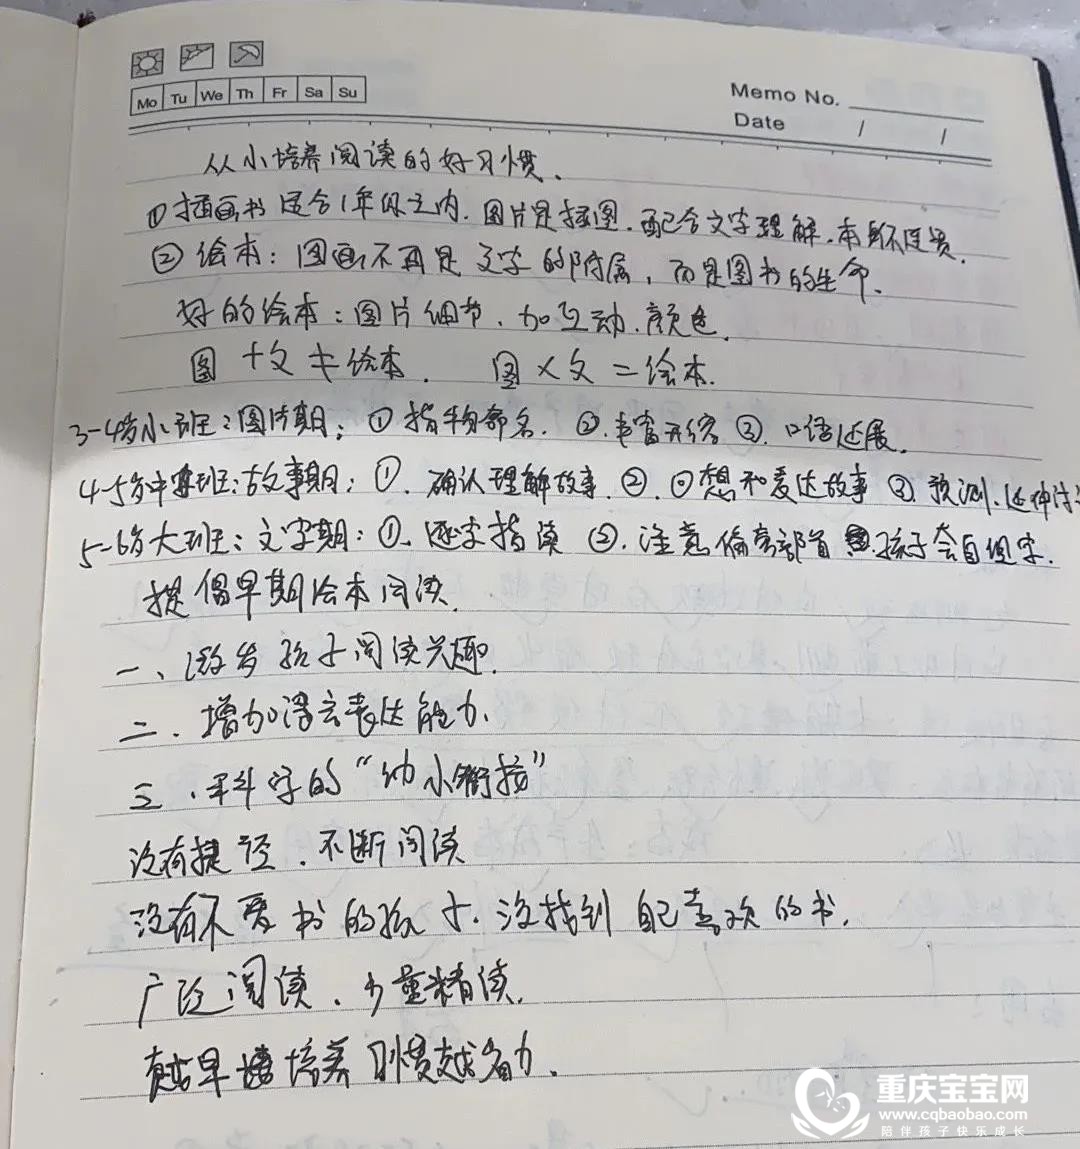 Mo Tu We Th Fr Sa Su
Memo No.
Date / /
从小培养阅读的好习惯.
①插画书 适合1年级之内.图片是插图.配合文字理解.本身不连贯.
②绘本:图画不再是文字的附属,而是图书的生命.
好的绘本:图片细节.加互动.颜色.
图+文≠绘本. 图×文=绘本.
3-4岁小班:图片期:①指物命名.②.丰富开缩③.口语延展.
4-5岁中班:故事期:①.确认理解故事.②.回想和表达故事③预测.延伸
5-6岁大班:文字期:①.逐字指读②.注意偏旁部首 孩子会自组字.
提倡早期绘本阅读.
一、激发孩子阅读兴趣.
二.增加语言表达能力.
三.科学的“幼小衔接”
没有捷径.不断阅读
没有不爱书的孩子.没找到自己喜欢的书.
广泛阅读.少量精读.
越早培养习惯越省力.
重庆宝宝网
www.cqbaobao.com
陪伴孩子快乐成长